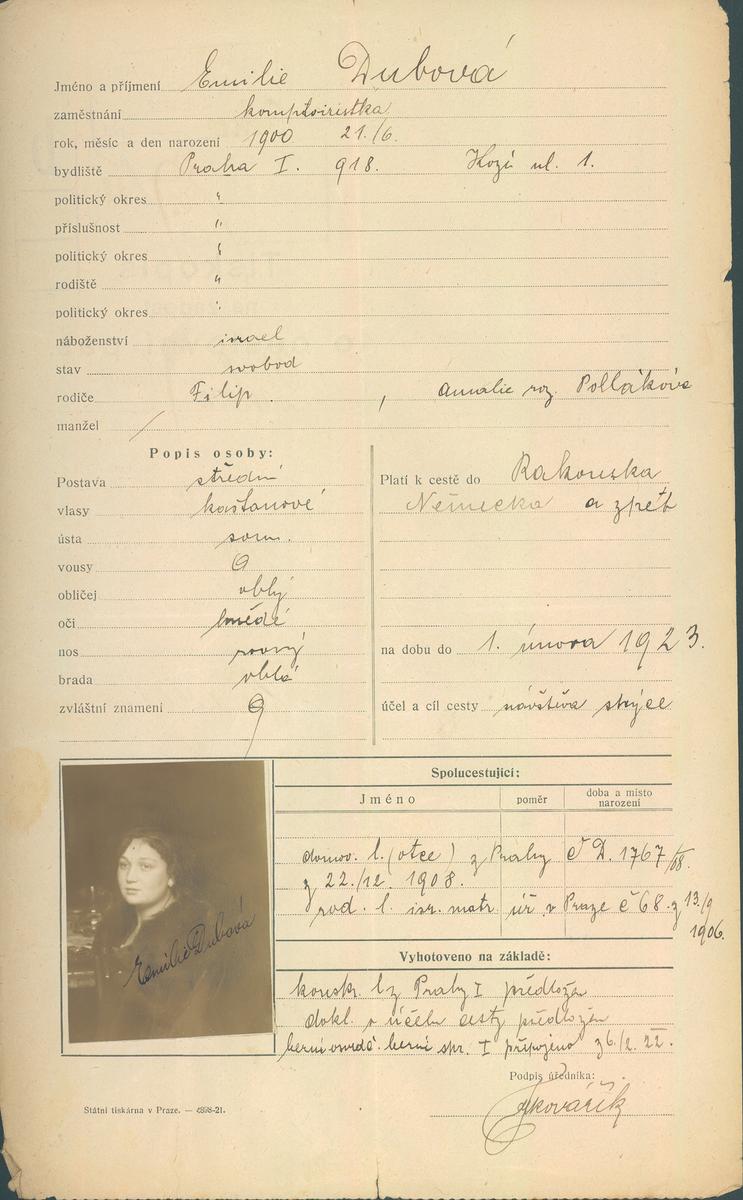 Jméno a příjmení Emilie Dubová
zaměstnání komptoiristka
rok, měsíc a den narození 1900 21./6.
bydliště Praha I. 918. Kozí ul. 1.
politický okres "
příslušnost "
politický okres "
rodiště "
politický okres "
náboženství israel
stav svobod
rodiče Filip , Amalie roz. Polláková
manžel /
Popis osoby:
Postava střední
vlasy kaštanové
ústa soum.
vousy 0
obličej oblý
oči hnědé
nos rovný
brada oblá
zvláštní znamení 0
Platí k cestě do Rakouska
Německa a zpět
na dobu do 1. února 1923.
účel a cíl cesty návštěva strýce
Spolucestující:
Jméno poměr doba a místo narození
domov. l. (otce) z Prahy č D. 1767/08.
z 22./12. 1908.
rod. l. isr. matr. úř. v Praze č 68. z 13./9
1906.
Vyhotoveno na základě:
konskr. l z Prahy I předložen
dokl. o účelu cesty předložen
berní osvědč. berní spr. I připojeno z 6./2. 22.
Emilie Dubová
Podpis úředníka:
Kovářík
Státní tiskárna v Praze. — 4898-21.